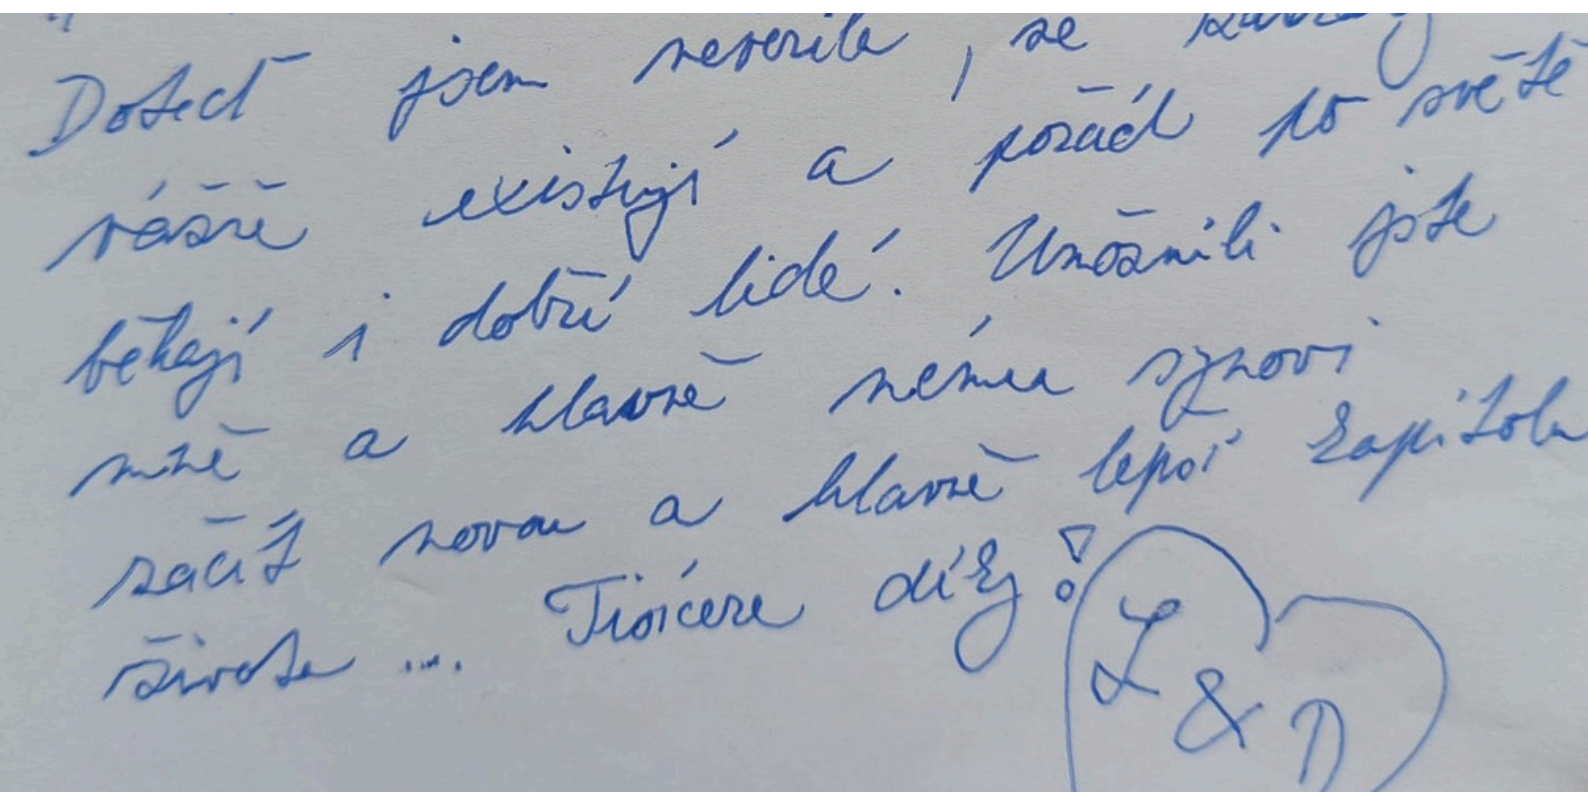 Doteď jsem nevěřila, že
vážně existují a pořád po světě
běhají i dobří lidé. Umožnili jste
mně a hlavně mému synovi
začít novou a hlavně lepší kapitolu
života .... Tisíceré díky!
L & D